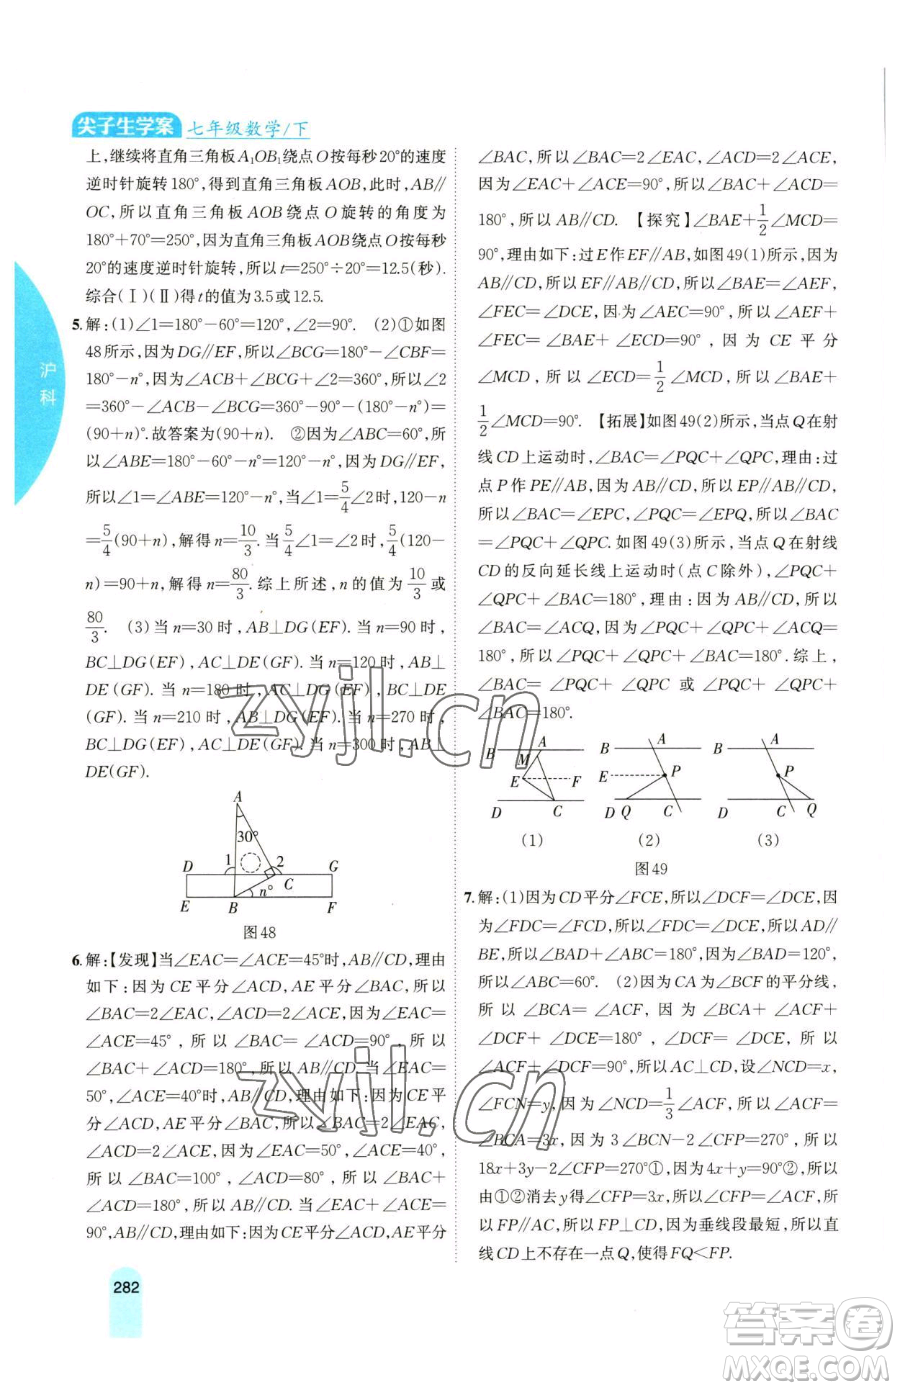 尖子生学案 七年级数学/下
上,继续将直角三角板A₁OB₁绕点O按每秒20°的速度
逆时针旋转180°,得到直角三角板AOB,此时,AB∥
OC,所以直角三角板AOB绕点O旋转的角度为
180°+70°=250°,因为直角三角板AOB绕点O按每秒
20°的速度逆时针旋转,所以t=250°÷20°=12.5(秒).
综合(Ⅰ)(Ⅱ)得t的值为3.5或12.5.
5.解:(1)∠1=180°-60°=120°,∠2=90°. (2)①如图
48所示,因为DG∥EF,所以∠BCG=180°-∠CBF=
180°-n°,因为∠ACB+∠BCG+∠2=360°,所以∠2
=360°-∠ACB-∠BCG=360°-90°-(180°-n°)=
(90+n)°.故答案为(90+n)°. ②因为∠ABC=60°,所
以∠ABE=180°-60°-n°=120°-n°,因为DG∥EF,
所以∠1=∠ABE=120°-n°,当∠1=5/4∠2时,120-n
=5/4(90+n),解得n=10/3.当5/4∠1=∠2时,5/4(120-
n)=90+n,解得n=80/3.综上所述,n的值为10/3或
80/3. (3)当n=30时,AB⊥DG(EF).当n=90时,
BC⊥DG(EF),AC⊥DE(GF).当n=120时,AB⊥
DE(GF).当n=180时,AC⊥DG(EF),BC⊥DE
(GF).当n=210时,AB⊥DG(EF).当n=270时,
BC⊥DG(EF),AC⊥DE(GF).当n=300时,AB⊥
DE(GF).
A
30°
D 1 2 G
C
E B n° F
图48
6.解:【发现】当∠EAC=∠ACE=45°时,AB∥CD,理由
如下:因为CE平分∠ACD,AE平分∠BAC,所以
∠BAC=2∠EAC,∠ACD=2∠ACE,因为∠EAC=
∠ACE=45°,所以∠BAC=∠ACD=90°,所以
∠BAC+∠ACD=180°,所以AB∥CD.当∠EAC=
50°,∠ACE=40°时,AB∥CD,理由如下:因为CE平
分∠ACD,AE平分∠BAC,所以∠BAC=2∠EAC,
∠ACD=2∠ACE,因为∠EAC=50°,∠ACE=40°,
所以∠BAC=100°,∠ACD=80°,所以∠BAC+
∠ACD=180°,所以AB∥CD.当∠EAC+∠ACE=
90°,AB∥CD,理由如下:因为CE平分∠ACD,AE平分
∠BAC,所以∠BAC=2∠EAC,∠ACD=2∠ACE,
因为∠EAC+∠ACE=90°,所以∠BAC+∠ACD=
180°,所以AB∥CD.【探究】∠BAE+1/2∠MCD=
90°,理由如下:过E作EF∥AB,如图49(1)所示,因为
AB∥CD,所以EF∥AB∥CD,所以∠BAE=∠AEF,
∠FEC=∠DCE,因为∠AEC=90°,所以∠AEF+
∠FEC=∠BAE+∠ECD=90°,因为CE平分
∠MCD,所以∠ECD=1/2∠MCD,所以∠BAE+
1/2∠MCD=90°.【拓展】如图49(2)所示,当点Q在射
线CD上运动时,∠BAC=∠PQC+∠QPC,理由:过
点P作PE∥AB,因为AB∥CD,所以EP∥AB∥CD,
所以∠BAC=∠EPC,∠PQC=∠EPQ,所以∠BAC
=∠PQC+∠QPC.如图49(3)所示,当点Q在射线
CD的反向延长线上运动时(点C除外),∠PQC+
∠QPC+∠BAC=180°,理由:因为AB∥CD,所以
∠BAC=∠ACQ,因为∠PQC+∠QPC+∠ACQ=
180°,所以∠PQC+∠QPC+∠BAC=180°.综上,
∠BAC=∠PQC+∠QPC或∠PQC+∠QPC+
∠BAC=180°.
B M A
E F
D C
(1)
B A
E P
D Q C
(2)
B A
P
D C Q
(3)
图49
7.解:(1)因为CD平分∠FCE,所以∠DCF=∠DCE,因
为∠FDC=∠FCD,所以∠FDC=∠DCE,所以AD∥
BE,所以∠BAD+∠ABC=180°,因为∠BAD=120°,
所以∠ABC=60°. (2)因为CA为∠BCF的平分线,
所以∠BCA=∠ACF,因为∠BCA+∠ACF+
∠DCF+∠DCE=180°,∠DCF=∠DCE,所以
∠ACF+∠DCF=90°,所以AC⊥CD,设∠NCD=x,
∠FCN=y,因为∠NCD=1/3∠ACF,所以∠ACF=
∠BCA=3x,因为3∠BCN-2∠CFP=270°,所以
18x+3y-2∠CFP=270°①,因为4x+y=90°②,所以
由①②消去y得∠CFP=3x,所以∠CFP=∠ACF,所
以FP∥AC,所以FP⊥CD,因为垂线段最短,所以直
线CD上不存在一点Q,使得FQ<FP.
沪科
282
zyjl.cn
zyjl.cn
答案圈
MXQE.COM